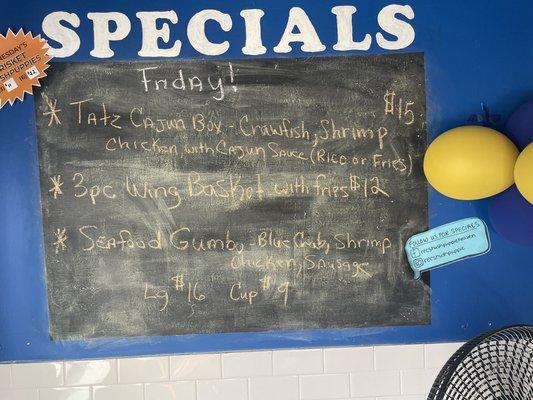 SPECIALS
BRISKET
Friday!
* Tatz Cajun Box - Crawfish, Shrimp $15
Chicken with Cajun Sauce (Rice or Fries)
* 3pc Wing Basket with fries $12
* Seafood Gumbo - Blue Crab, Shrimp
Chicken, Sausage
Lg $16 Cup $9
FOLLOW US FOR SPECIALS